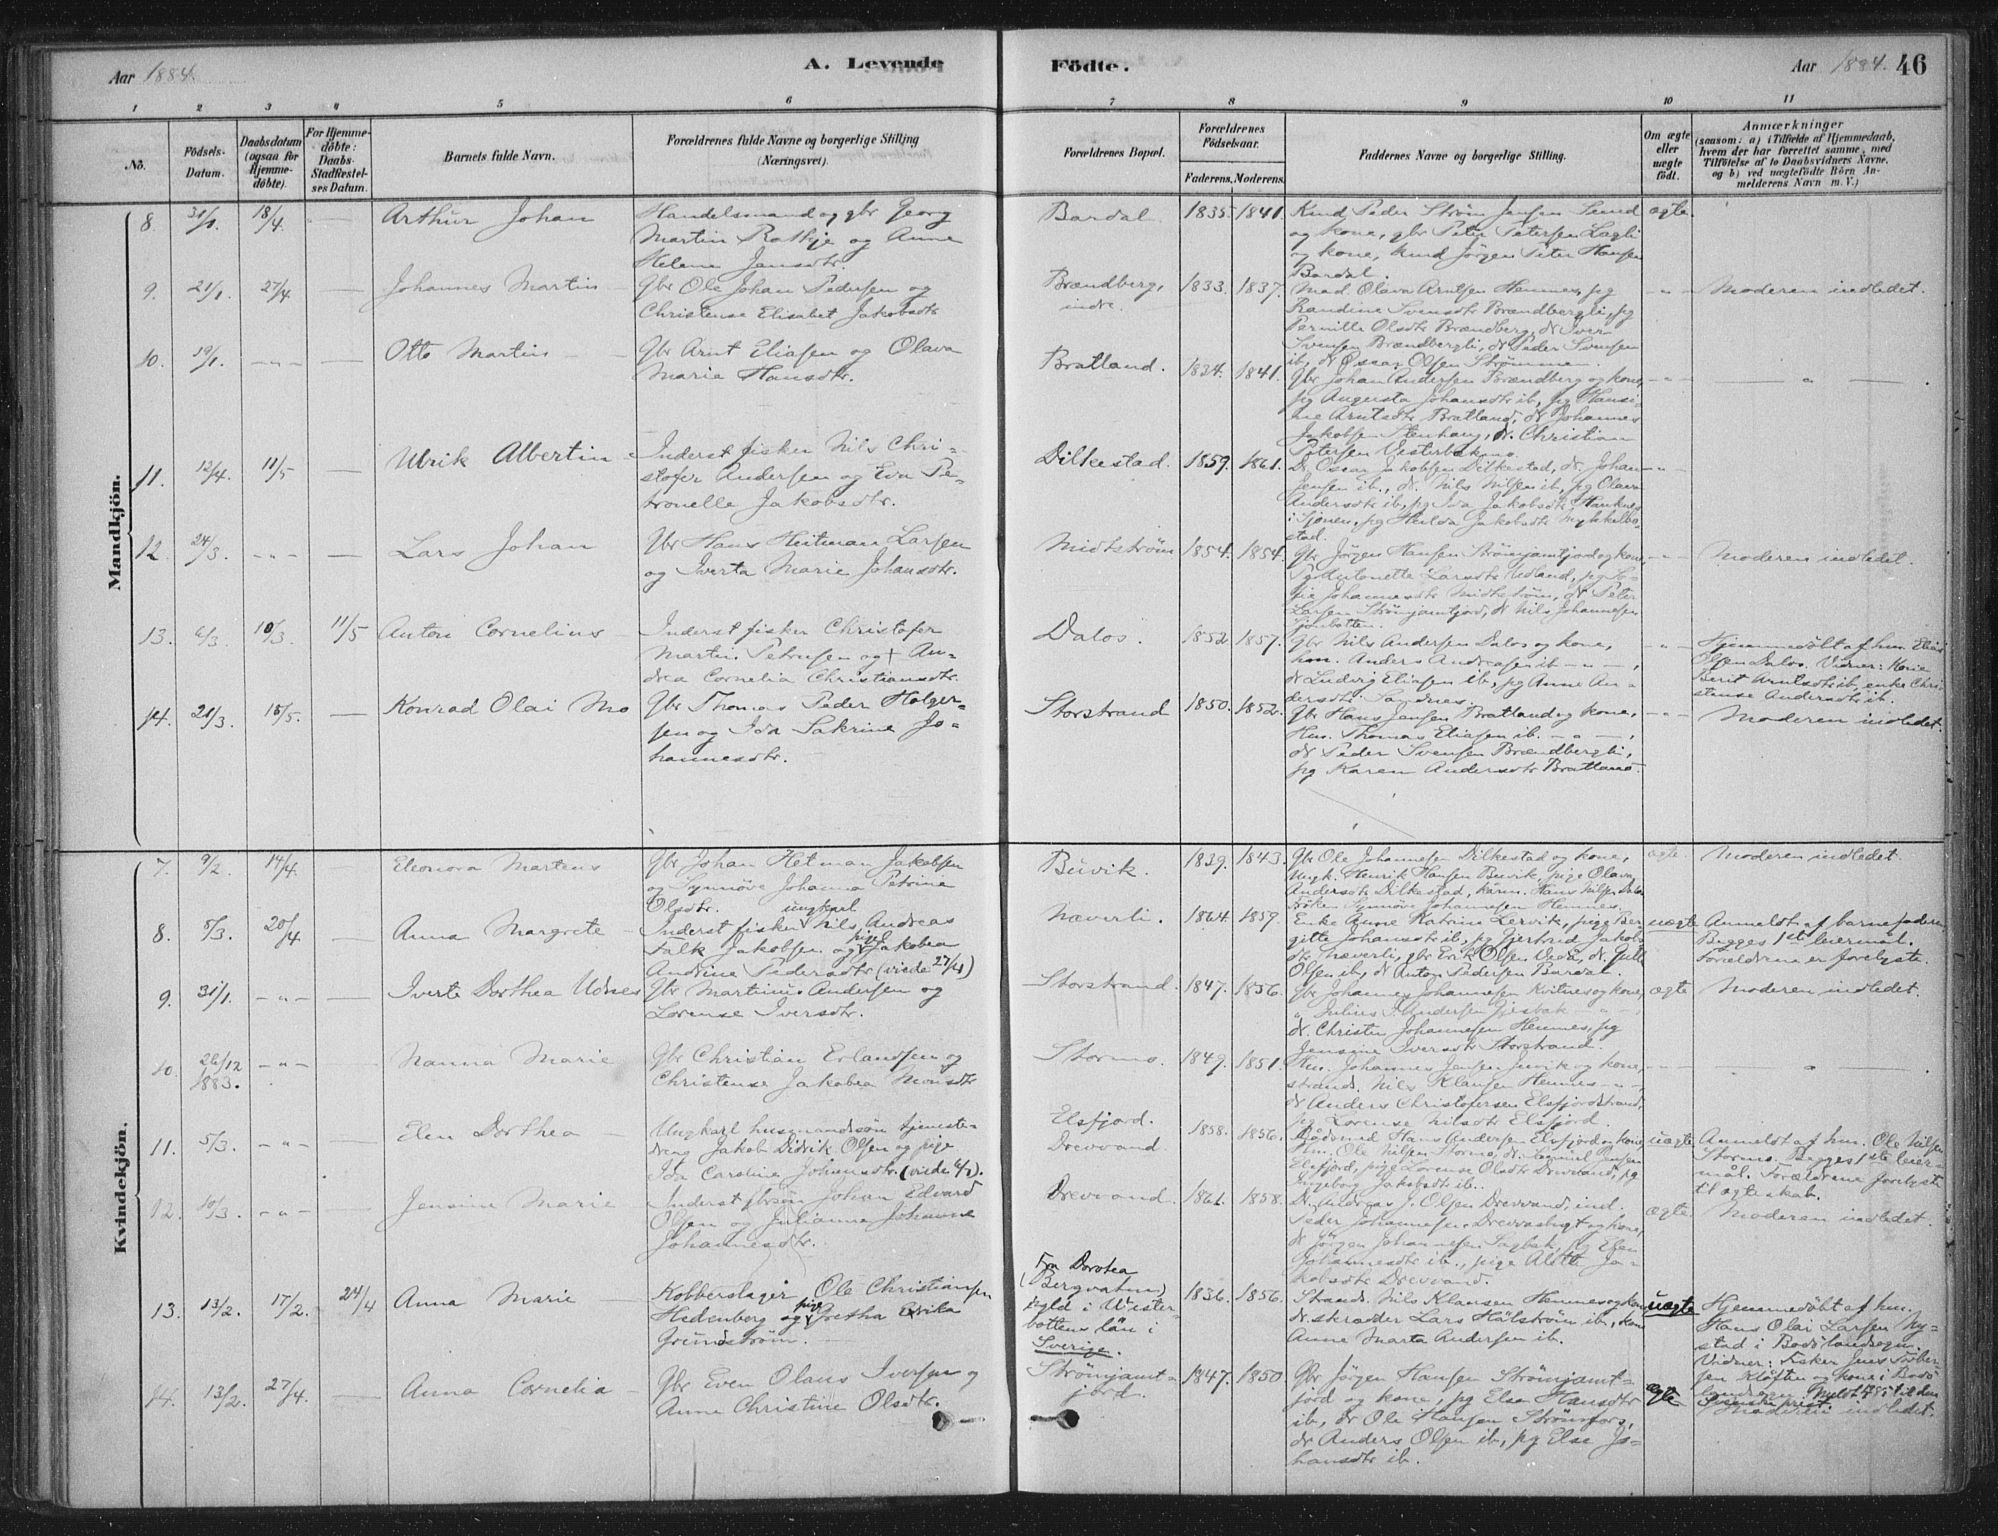 Aar 1884.
A. Levende
Fødte.
Aar 1884.
46
1 2 3 4 5 6 7 8 9 10 11
No.
Fødsels-Datum.
Daabsdatum (ogsaa for Hjemme-døbte).
For Hjemme-døbte: Daabs-Stadfæstel-ses Datum.
Barnets fulde Navn.
Forældrenes fulde Navne og borgerlige Stilling (Næringsvei).
Forældrenes Bopæl.
Forældrenes Fødselsaar.
Faderens. Moderens.
Faddernes Navne og borgerlige Stilling.
Om ægte eller uægte født.
Anmærkninger
(saasom: a) i Tilfælde af Hjemmedaab, hvem der har forrettet samme, med Tilføielse af to Daabsvidners Navne, og b) ved uægtefødte Børn An-melderens Navn m. V.)
Mandkjön.
8. 18/4. — Arthur Johan
Handelsmand og gbr Georg
Martin Rathje og Anne
Helene Jensdtr.
Bardal. 1835. 1841.
og kone, gbr Peter Petersen
og kone, Jørgen Peter Hansen
Bardal.
ægte.
9. 21/1. 27/4 — Johannes Martin
Gbr Ole Johan Pedersen og
Christense Elisabet Jakobsdtr
Brændberg, indre. 1833. 1837.
Mad. Olava Arntsen Hemnes, pg
Randine Svensdtr Brændbergli, pg
Pernille Olsdtr Brændberg, dr Iver
Svensen Brændbergli, dr Peder Svensen
ib, dr Oscar Olsen Strømme.
— " — Moderen indledet.
10. 19/1. — " — Otto Martin
Gbr Arnt Eliasen og Olava
Marie Hansdtr.
Bratland. 1834. 1841.
Gbr Johan Andersen Brændberg og kone,
pg Augusta Johansdtr ib, pg Hansi-
ne Arntsdtr Bratland, dr Johannes
Jakobsen Stenhaug, dr. Christian
Petersen
— " — — " —
11. 12/4. 11/5 — Ulrik Albertin
Inderst fisker Nils Chri-
stofer Andersen og Eva Pe-
tronelle Jakobsdtr.
Dilkestad. 1859. 1861.
Dr. Oscar Jakobsen Dilkestad, dr. Johan
Jensen ib., dr. Nils Nilsen ib, pg Olava
Andersdtr ib, pg Ida Jakobsdtr
i Sjonen, pg Hulda Jakobsdtr
stad.
— " —
12. 24/3. — " — — Lars Johan
Gbr Hans Heitman Larsen
og Iverta Marie Johansdtr.
Midtstrøm 1854. 1854.
Gbr Jørgen Hansen Strømjamtjord og kone,
Pg Antonette Larsdtr
Johannesdtr Midtstrøm, dr Peter
Larsen Strømjamtjord, dr Nils Johannesen
— " — Moderen indledet.
13. 6/3 10/3. 11/5 Anton Cornelius
Inderst fisker Christofer
Martin Petersen og + An-
drea Cornelia Christiansdtr.
Dalos. 1852 1857.
Gbr Nils Andersen Dalos og kone,
hm. Anders Andreasen ib — " —,
dr Ludvig Eliasen ib, pg Anne An-
dersdtr Sandnes.
— " — Hjemmedøbt af hm Elias
Olsen Dalos. Vidner: Karen
Berit Arntsdtr ib, enke Chri-
stense Andersdtr ib.
14. 21/3. 18/5. — Konrad Olai Mo
Gbr Thomas Peder Holger-
sen og Ida Sakrine Jo-
hannesdtr.
Storstrand 1850. 1852.
Gbr Hans Jensen Bratland og kone,
Hm. Thomas Eliasen ib. — " —,
dr Peder Svensen Brændbergli,
pg Karen Andersdtr Bratland.
— " — Moderen indledet.
Kvindekjön.
7. 9/2. 14/4. — Eleonora Martens
Gbr Johan Hetman Jakobsen
og Synnøve Johanna Petrine
Olsdtr.
Buvik. 1839. 1843.
Gbr Ole Johannesen Dilkestad og kone,
Ungk. Henrik Hansen Buvik, pige Olava
Andersdtr Dilkestad, Hans Nilsen
Synnøve Johannesen Hemnes.
ægte. Moderen indledet.
8. 8/3. 20/4 — Anna Margrete
ungkarl
Inderst fisker Nils Andreas
Falk Jakobsen og pige Jakobea
Andrine Pedersdtr (viede 27/4)
Næverli. 1864. 1859.
Enke Anne Katrine Lervik, pige Ber-
gitte Johansdtr ib, pg Gjertrud Jakobs-
dtr Næverli, gbr Erik Olsen
Olsen ib, dr Anton Pedersen Bardal.
uægte Anmeldt af barnefaderen
Begges 1ste leiermål.
Forældrene er forelyste.
9. 31/1. — " — — Iverte Dorthea Udnes
Gbr Martinus Andersen og
Lorense Iversdtr.
Storstrand. 1847. 1856.
Gbr Johannes Johannesen Kvitnes og kone,
" Julius Andersen — " —,
dr. Christen Johannesen Hemnes, pg
Jensine Iversdtr Storstrand.
ægte Moderen indledet.
10. 26/12 1883. — " — Nanna Marie
Gbr Christian Erlandsen og
Christense Jakobea Monsdtr
Stormo. 1849. 1851.
Hm. Johannes Jensen og kone,
strands. Nils Klausen Hemnes — " —,
dr Anders Christofersen Elsfjordstrand,
pg Lorense Nilsdtr Elsfjord.
— " — — " —
11. 5/3. — " — — Elen Dorthea
Ungkarl husmandssøn tjeneste-
dreng Jakob Didrik Olsen og pige
Ida Caroline Johansdtr. (viede
Elsfjord.
Drevvand. 1858. 1856.
Hans Andersen Elsfjord og kone,
Hm. Ole Nilsen Stormo, dr. Jensen
Elsfjord, pige Lorense Olsdtr Drevvand, pg
Ingeborg Jakobsdtr ib.
uægte Anmeldt af hm. Ole Nilsen
Stormo. Begges 1ste leier-
mål. Forældrene forelyste
til ægteskab.
12. 10/3. — " — Jensine Marie
Inderst gbrsøn Johan Edvard
Olsen og Julianne Johanne
Johannesdtr.
Drevvand. 1861. 1858.
Dr. Andreas J. Olsen Drevvand, ind.
Peder Johannesen og kone,
dr Jørgen Johannesen pg Elen
Johannesdtr ib., pige Alette Ja-
kobsdtr Drevvand.
ægte Moderen indledet.
13. 13/2. 17/2. 24/4 Anna Marie
Kobberslager Ole Christiansen
Hedenberg og pige Gretha Erika
Grundstrøm.
Fra Dorotea
(Bergvattnet)
sogld i Wester-
bottens län i
Sverige.
1836. 1856.
Strands. Nils Klausen Hemnes og kone
dr. skrædder Lars Hälstrøm ib,
Anne Marta Andersen ib.
uægte Hjemmedøbt af hm.
Hans Olai Larsen Ny-
stad i Bodø landsogn.
Vidner: Fisker Jens Tober-
sen Kløften og kone i Bodø
landsogn. Meldt til den
Svenske prest.
14. 13/2. 27/4. — Anna Cornelia
Gbr Even Olaus Iversen og
Anne Christine Olsdtr.
Strømjamt-
jord. 1847. 1850
Gbr Jørgen Hansen Strømjamt-
jord og kone, pg Else Hansdtr
ib, dr Ole Hansen Strømfors,
dr Anders Olsen ib, pg Else Jo-
hansdtr ib.
ægte Moderen indledet.